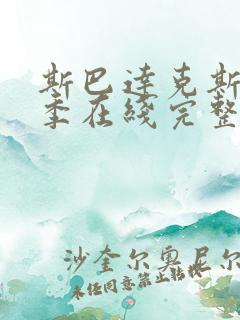 斯巴达克斯
季在线完整
沙奎尔奥尼尔
未经同意禁止转载